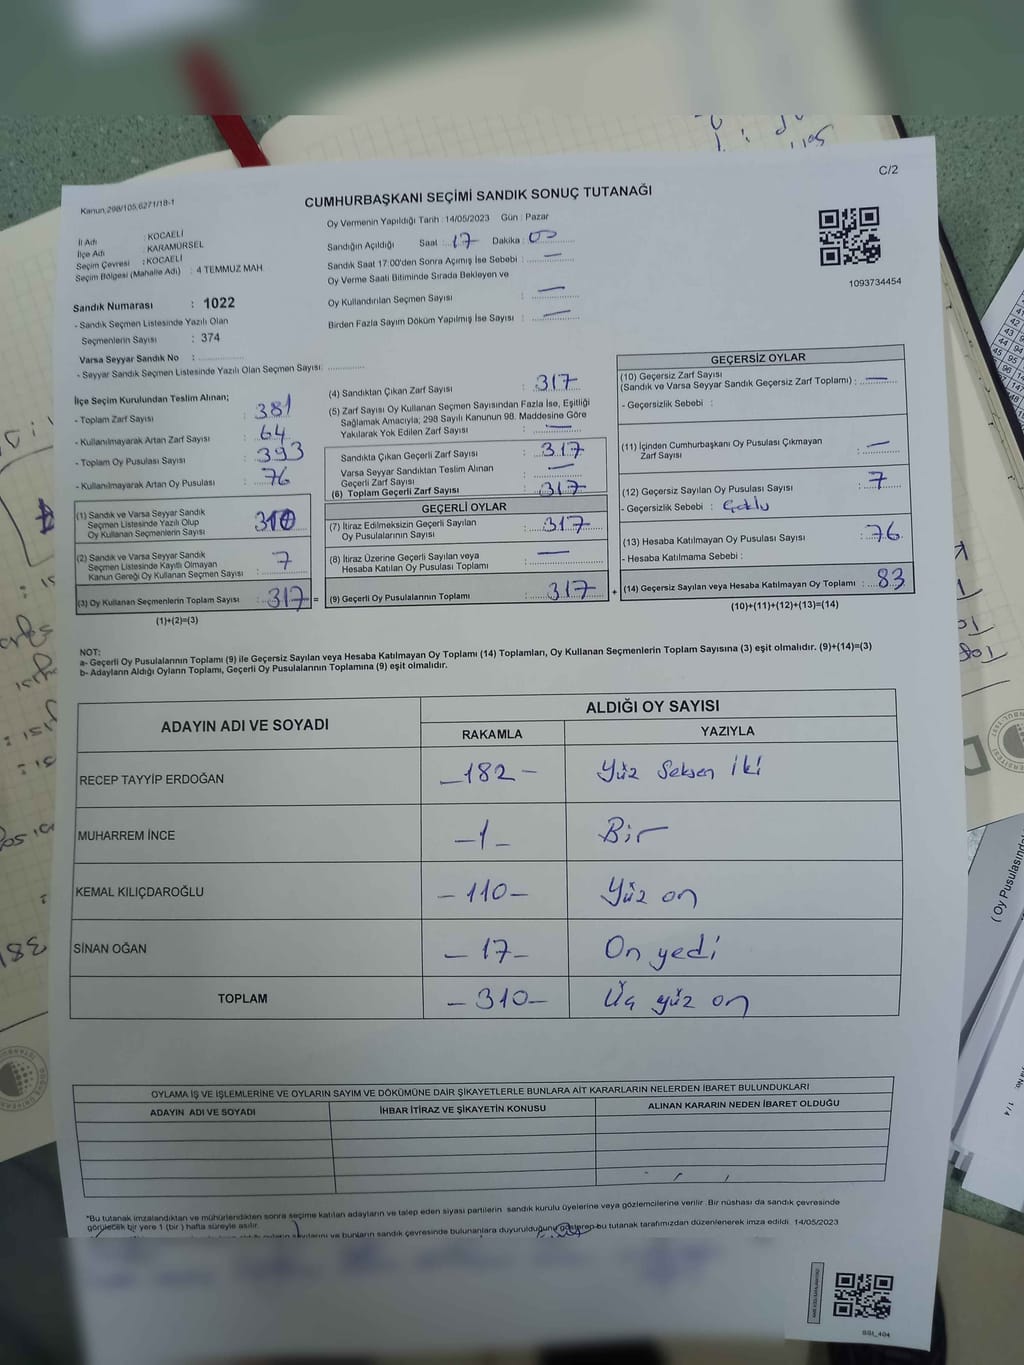 C/2
Kanun,298/105,6271/18-1
CUMHURBAŞKANI SEÇİMİ SANDIK SONUÇ TUTANAĞI
Oy Vermenin Yapıldığı Tarih : 14/05/2023 Gün : Pazar
İl Adı : KOCAELİ
İlçe Adı : KARAMÜRSEL
Seçim Çevresi : KOCAELİ
Seçim Bölgesi (Mahalle Adı) : 4 TEMMUZ MAH
Sandığın Açıldığı Saat : 17 Dakika : 00
Sandık Saat 17:00'den Sonra Açımış İse Sebebi : —
Oy Verme Saati Bitiminde Sırada Bekleyen ve
Oy Kullandırılan Seçmen Sayısı : —
Birden Fazla Sayım Döküm Yapılmış İse Sayısı : —
1093734454
Sandık Numarası : 1022
- Sandık Seçmen Listesinde Yazılı Olan
Seçmenlerin Sayısı : 374
Varsa Seyyar Sandık No :
- Seyyar Sandık Seçmen Listesinde Yazılı Olan Seçmen Sayısı:
İlçe Seçim Kurulundan Teslim Alınan;
- Toplam Zarf Sayısı : 381
- Kullanılmayarak Artan Zarf Sayısı : 64
- Toplam Oy Pusulası Sayısı : 393
- Kullanılmayarak Artan Oy Pusulası : 76
(1) Sandık ve Varsa Seyyar Sandık
Seçmen Listesinde Yazılı Olup
Oy Kullanan Seçmenlerin Sayısı : 310
(2) Sandık ve Varsa Seyyar Sandık
Seçmen Listesinde Kayıtlı Olmayan
Kanun Gereği Oy Kullanan Seçmen Sayısı : 7
(3) Oy Kullanan Seçmenlerin Toplam Sayısı : 317 =
(1)+(2)=(3)
(4) Sandıktan Çıkan Zarf Sayısı : 317
(5) Zarf Sayısı Oy Kullanan Seçmen Sayısından Fazla İse, Eşitliği
Sağlamak Amacıyla, 298 Sayılı Kanunun 98. Maddesine Göre
Yakılarak Yok Edilen Zarf Sayısı : —
Sandıkta Çıkan Geçerli Zarf Sayısı : 317
Varsa Seyyar Sandıktan Teslim Alınan
Geçerli Zarf Sayısı : —
(6) Toplam Geçerli Zarf Sayısı : 317
GEÇERLİ OYLAR
(7) İtiraz Edilmeksizin Geçerli Sayılan
Oy Pusulalarının Sayısı : 317
(8) İtiraz Üzerine Geçerli Sayılan veya
Hesaba Katılan Oy Pusulası Toplamı : —
(9) Geçerli Oy Pusulalarının Toplamı : 317 +
GEÇERSİZ OYLAR
(10) Geçersiz Zarf Sayısı
(Sandık ve Varsa Seyyar Sandık Geçersiz Zarf Toplamı) : —
- Geçersizlik Sebebi :
(11) İçinden Cumhurbaşkanı Oy Pusulası Çıkmayan
Zarf Sayısı : —
(12) Geçersiz Sayılan Oy Pusulası Sayısı : 7
- Geçersizlik Sebebi : Çoklu
(13) Hesaba Katılmayan Oy Pusulası Sayısı : 76
- Hesaba Katılmama Sebebi :
(14) Geçersiz Sayılan veya Hesaba Katılmayan Oy Toplamı : 83
(10)+(11)+(12)+(13)=(14)
NOT:
a- Geçerli Oy Pusulalarının Toplamı (9) ile Geçersiz Sayılan veya Hesaba Katılmayan Oy Toplamı (14) Toplamları, Oy Kullanan Seçmenlerin Toplam Sayısına (3) eşit olmalıdır. (9)+(14)=(3)
b- Adayların Aldığı Oyların Toplamı, Geçerli Oy Pusulalarının Toplamına (9) eşit olmalıdır.
ADAYIN ADI VE SOYADI
ALDIĞI OY SAYISI
RAKAMLA YAZIYLA
RECEP TAYYİP ERDOĞAN —182— Yüz Seksen İki
MUHARREM İNCE —1— Bir
KEMAL KILIÇDAROĞLU —110— Yüz on
SİNAN OĞAN —17— On yedi
TOPLAM —310— Üç yüz on
OYLAMA İŞ VE İŞLEMLERİNE VE OYLARIN SAYIM VE DÖKÜMÜNE DAİR ŞİKAYETLERLE BUNLARA AİT KARARLARIN NELERDEN İBARET BULUNDUKLARI
ADAYIN ADI VE SOYADI İHBAR İTİRAZ VE ŞİKAYETİN KONUSU ALINAN KARARIN NEDEN İBARET OLDUĞU
*Bu tutanak imzalandıktan ve mühürlendikten sonra seçime katılan adayların ve talep eden siyasi partilerin sandık kurulu üyelerine veya gözlemcilerine verilir. Bir nüshası da sandık çevresinde
görülecek bir yere 1 (bir) hafta süreyle asılır.
ve bunların sandık çevresinde bulunanlara duyurulduğunu gösteren bu tutanak tarafımızdan düzenlenerek imza edildi. 14/05/2023
SSt_404